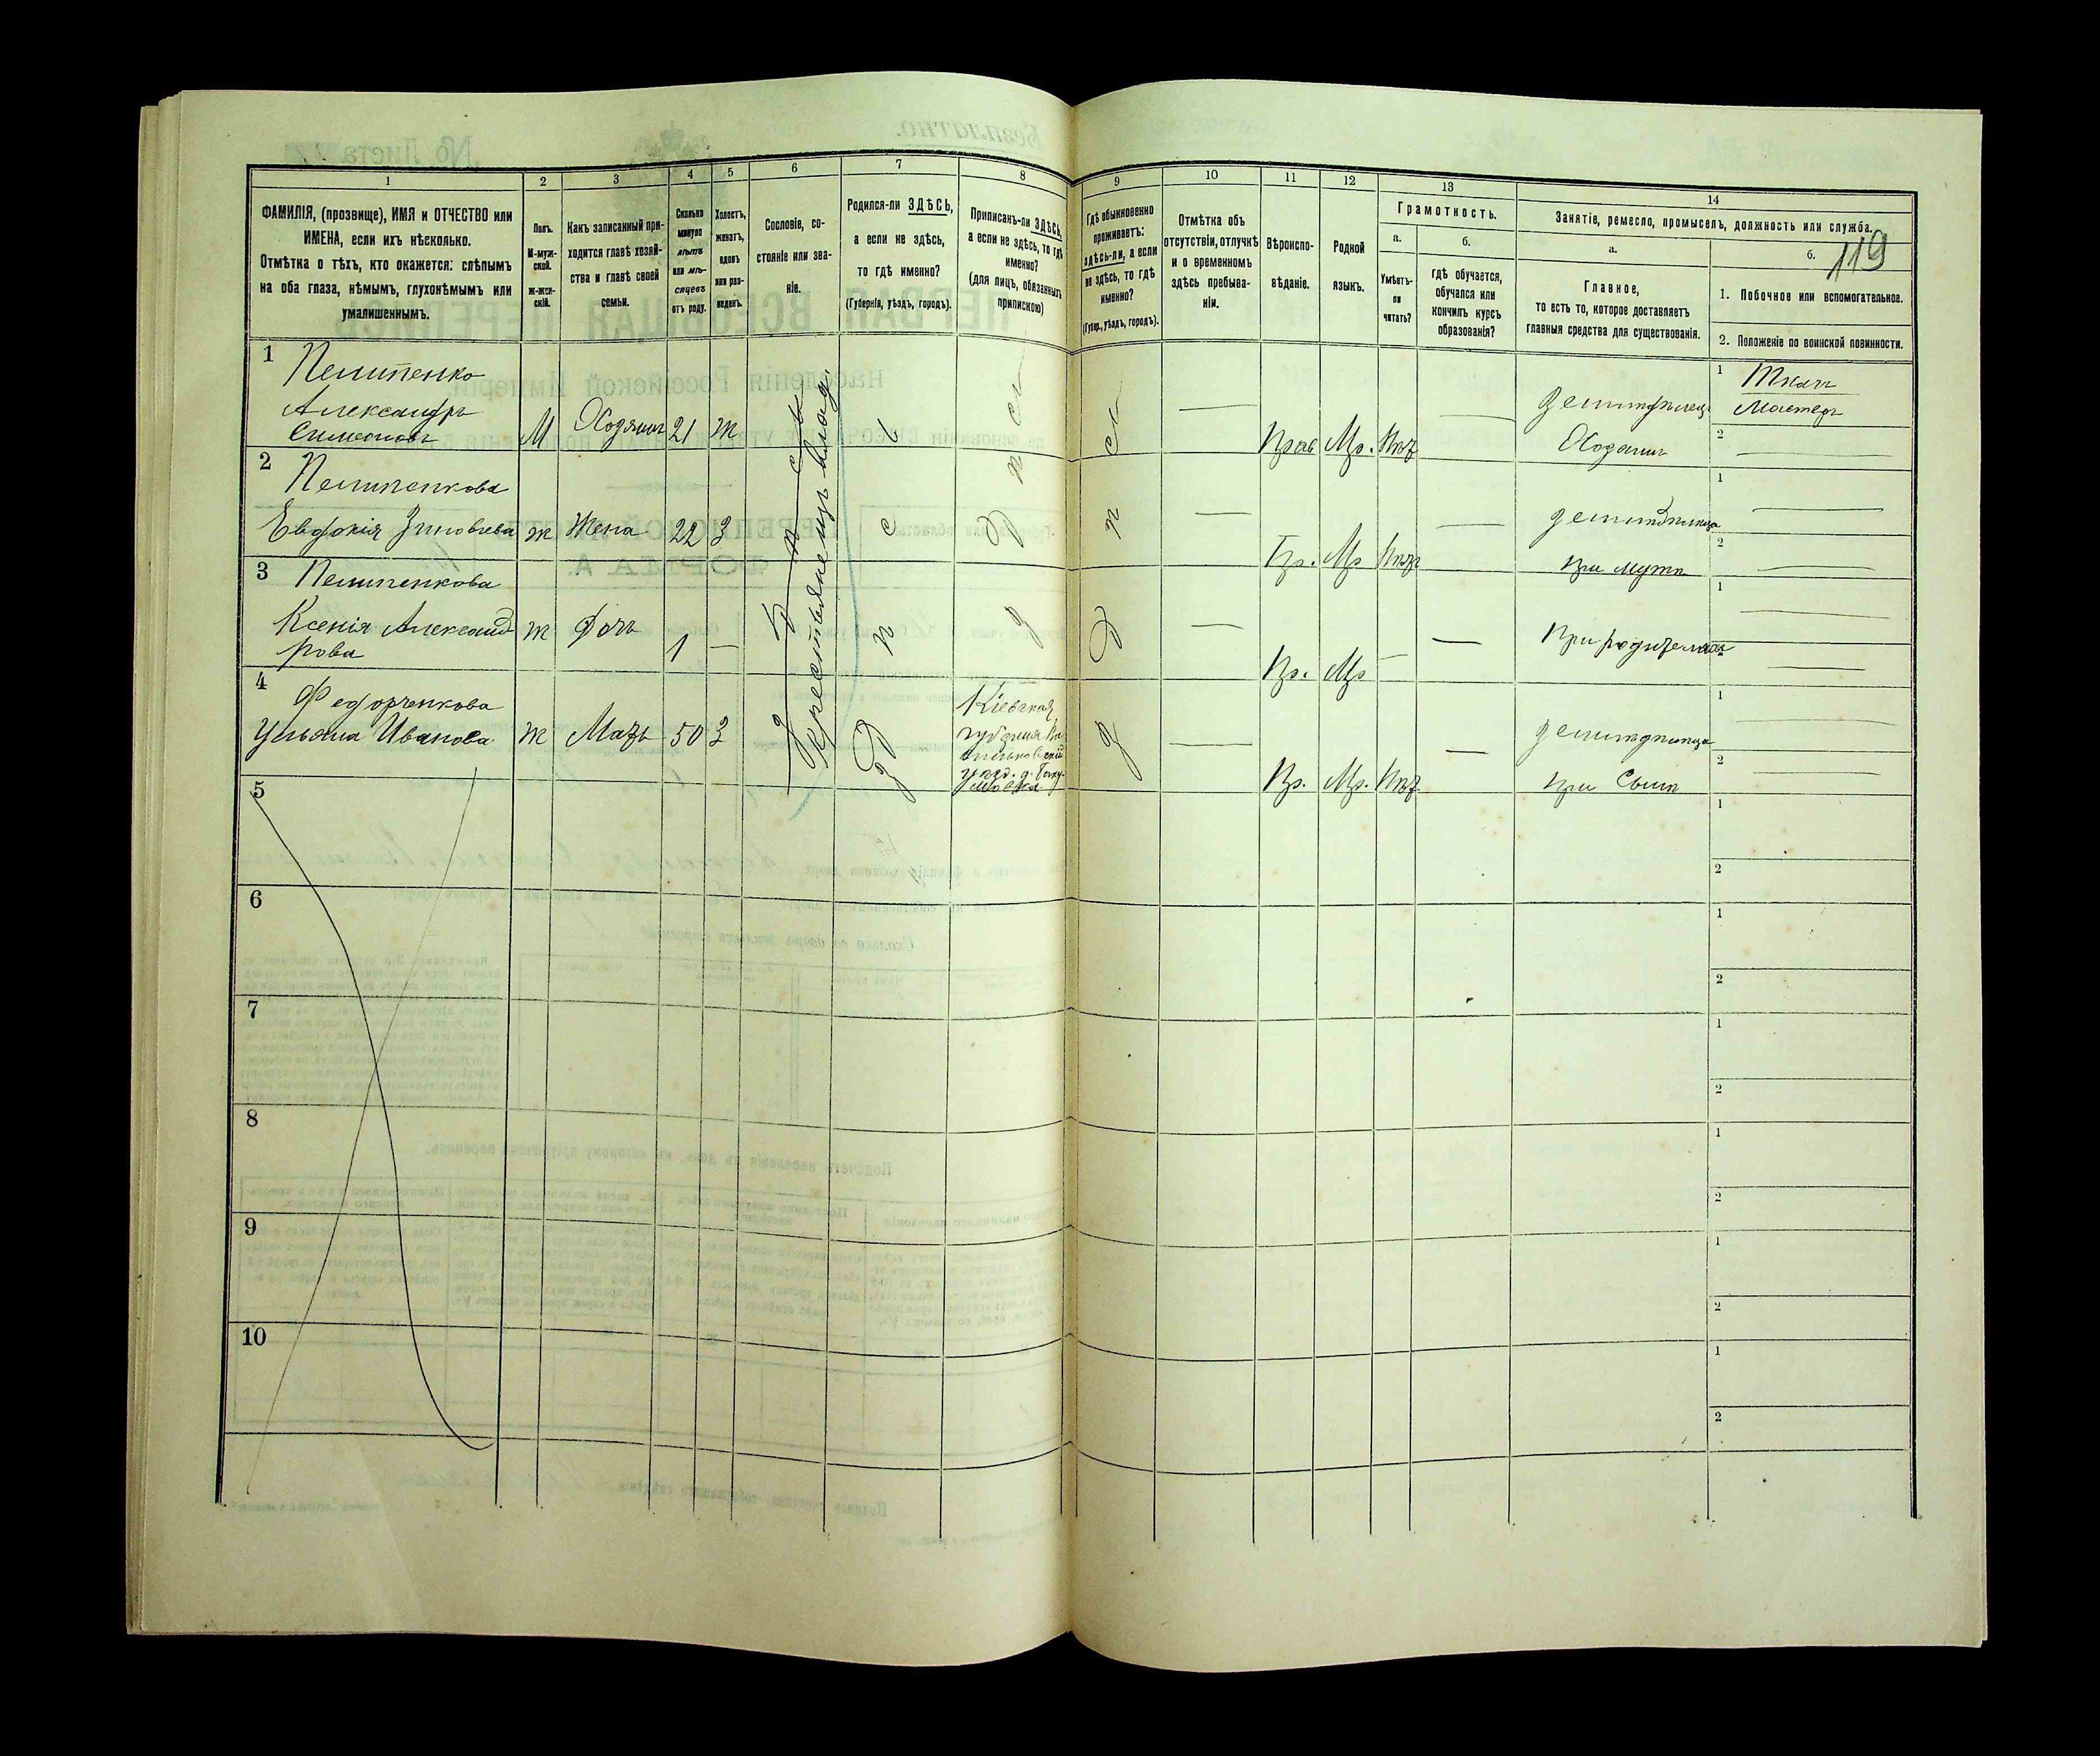 1
2
3
4
5
6
7
8
9
10
11
12
13
14
ФАМИЛІЯ, (прозвище), ИМЯ и ОТЧЕСТВО или
ИМЕНА, если ихъ нѣсколько.
Отмѣтка о тѣхъ, кто окажется: слѣпымъ
на оба глаза, нѣмымъ, глухонѣмымъ или
умалишеннымъ.
Полъ.
М-муж-
ской.
Ж-жен-
скій.
Какъ записанный при-
ходится главѣ хозяй-
ства и главѣ своей
семьи.
Сколько
минуло
лѣтъ
или мѣ-
сяцевъ
отъ роду.
Холостъ,
женатъ,
вдовъ
или раз-
веденъ.
Сословіе, со-
стояніе или зва-
ніе.
Родился-ли ЗДѢСЬ,
а если не здѣсь,
то гдѣ именно?
(Губернія, уѣздъ, городъ).
Приписанъ-ли ЗДѢСЬ,
а если не здѣсь, то гдѣ
именно?
(для лицъ, обязанныхъ
припискою)
Гдѣ обыкновенно
проживаетъ:
здѣсь-ли, а если
не здѣсь, то гдѣ
именно?
(Губер., уѣздъ, городъ).
Отмѣтка объ
отсутствіи, отлучкѣ
и о временномъ
здѣсь пребыва-
ніи.
Вѣроиспо-
вѣданіе.
Родной
языкъ.
Грамотность.
а.
Умѣетъ-
ли
читать?
б.
гдѣ обучается,
обучался или
кончилъ курсъ
образованія?
Занятіе, ремесло, промыселъ, должность или служба.
а.
Главное,
то есть то, которое доставляетъ
главныя средства для существованія.
б.
119
1. Побочное или вспомогательное.
2. Положеніе по воинской повинности.
1
Пелипенко
Александръ
Симеоновъ
М
Хозяинъ
21
Ж
Прав
Мр.
Нѣт
Хозяинъ
1
Ткачъ
Мастеръ
2
Крестьяне изъ влад.
2
Пелипенкова
Евдокія Зиновіева
ж
Жена
22
З
Пр.
Мр
Нѣт
при мужѣ
1
2
3
Пелипенкова
Ксенія Александ
рова
ж
Дочь
1
Пр.
Мр
При родителяхъ
1
2
4
Федорченкова
Ульяна Иванова
ж
Мать
50
З
Кіевская
губернія
Пр.
Мр.
Нѣт
при Сынѣ
1
2
5
1
2
6
1
2
7
1
2
8
1
2
9
1
2
10
1
2